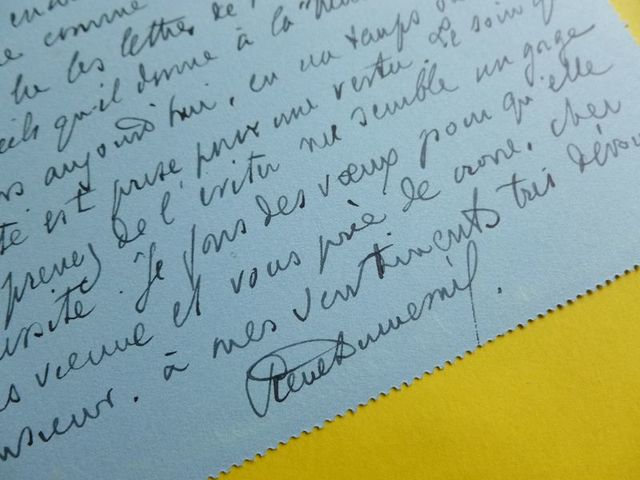 comme
les lettres de
qu'il donne à la
aujourd'hui, en un temps
est prise pour une vertu. Le soin
prenez de l'éviter me semble un gage
. Je fais des vœux pour qu'elle
vienne et vous prie de croire, cher
nsieur, à mes sentiments très dévou
René Dumesnil.